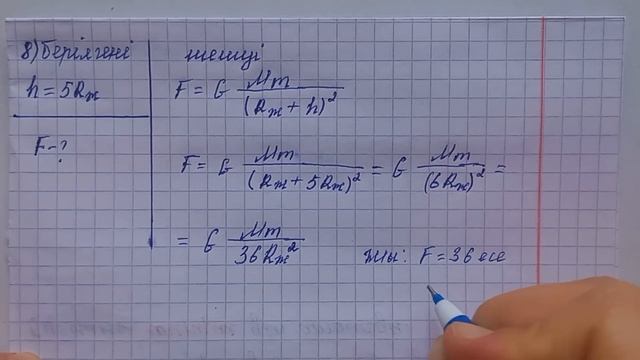 8) Берілгені
h = 5Rж
F-?
шешуі
F = G Mm / (Rж + h)²
F = G Mm / (Rж + 5Rж)² = G Mm / (6Rж)² =
= G Mm / 36Rж²
Ж/ы: F = 36 есе